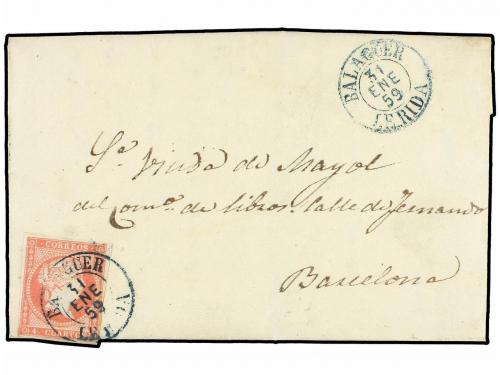 BALAGUER
31
ENE
59
LERIDA
Sª Viuda de Mayol
del comº de libros. Calle de Fernando
Barcelona
CORREOS
BALAGUER
31
ENE
59
LERIDA
4 CUARTOS